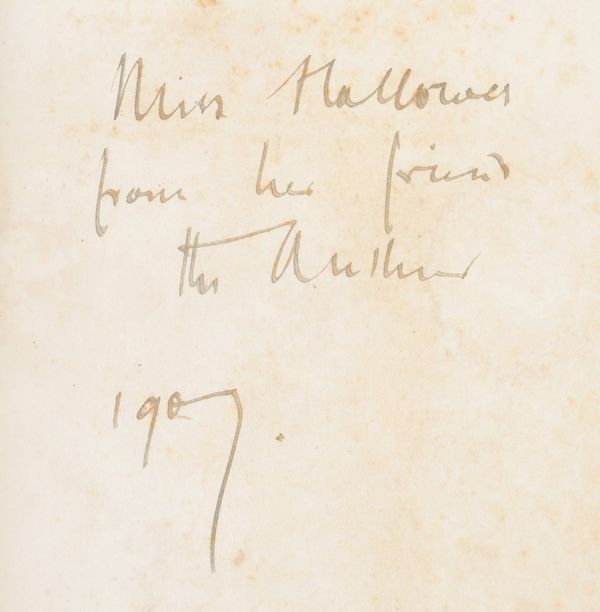 Miss Hallowes
from her friend
the Author
1907.